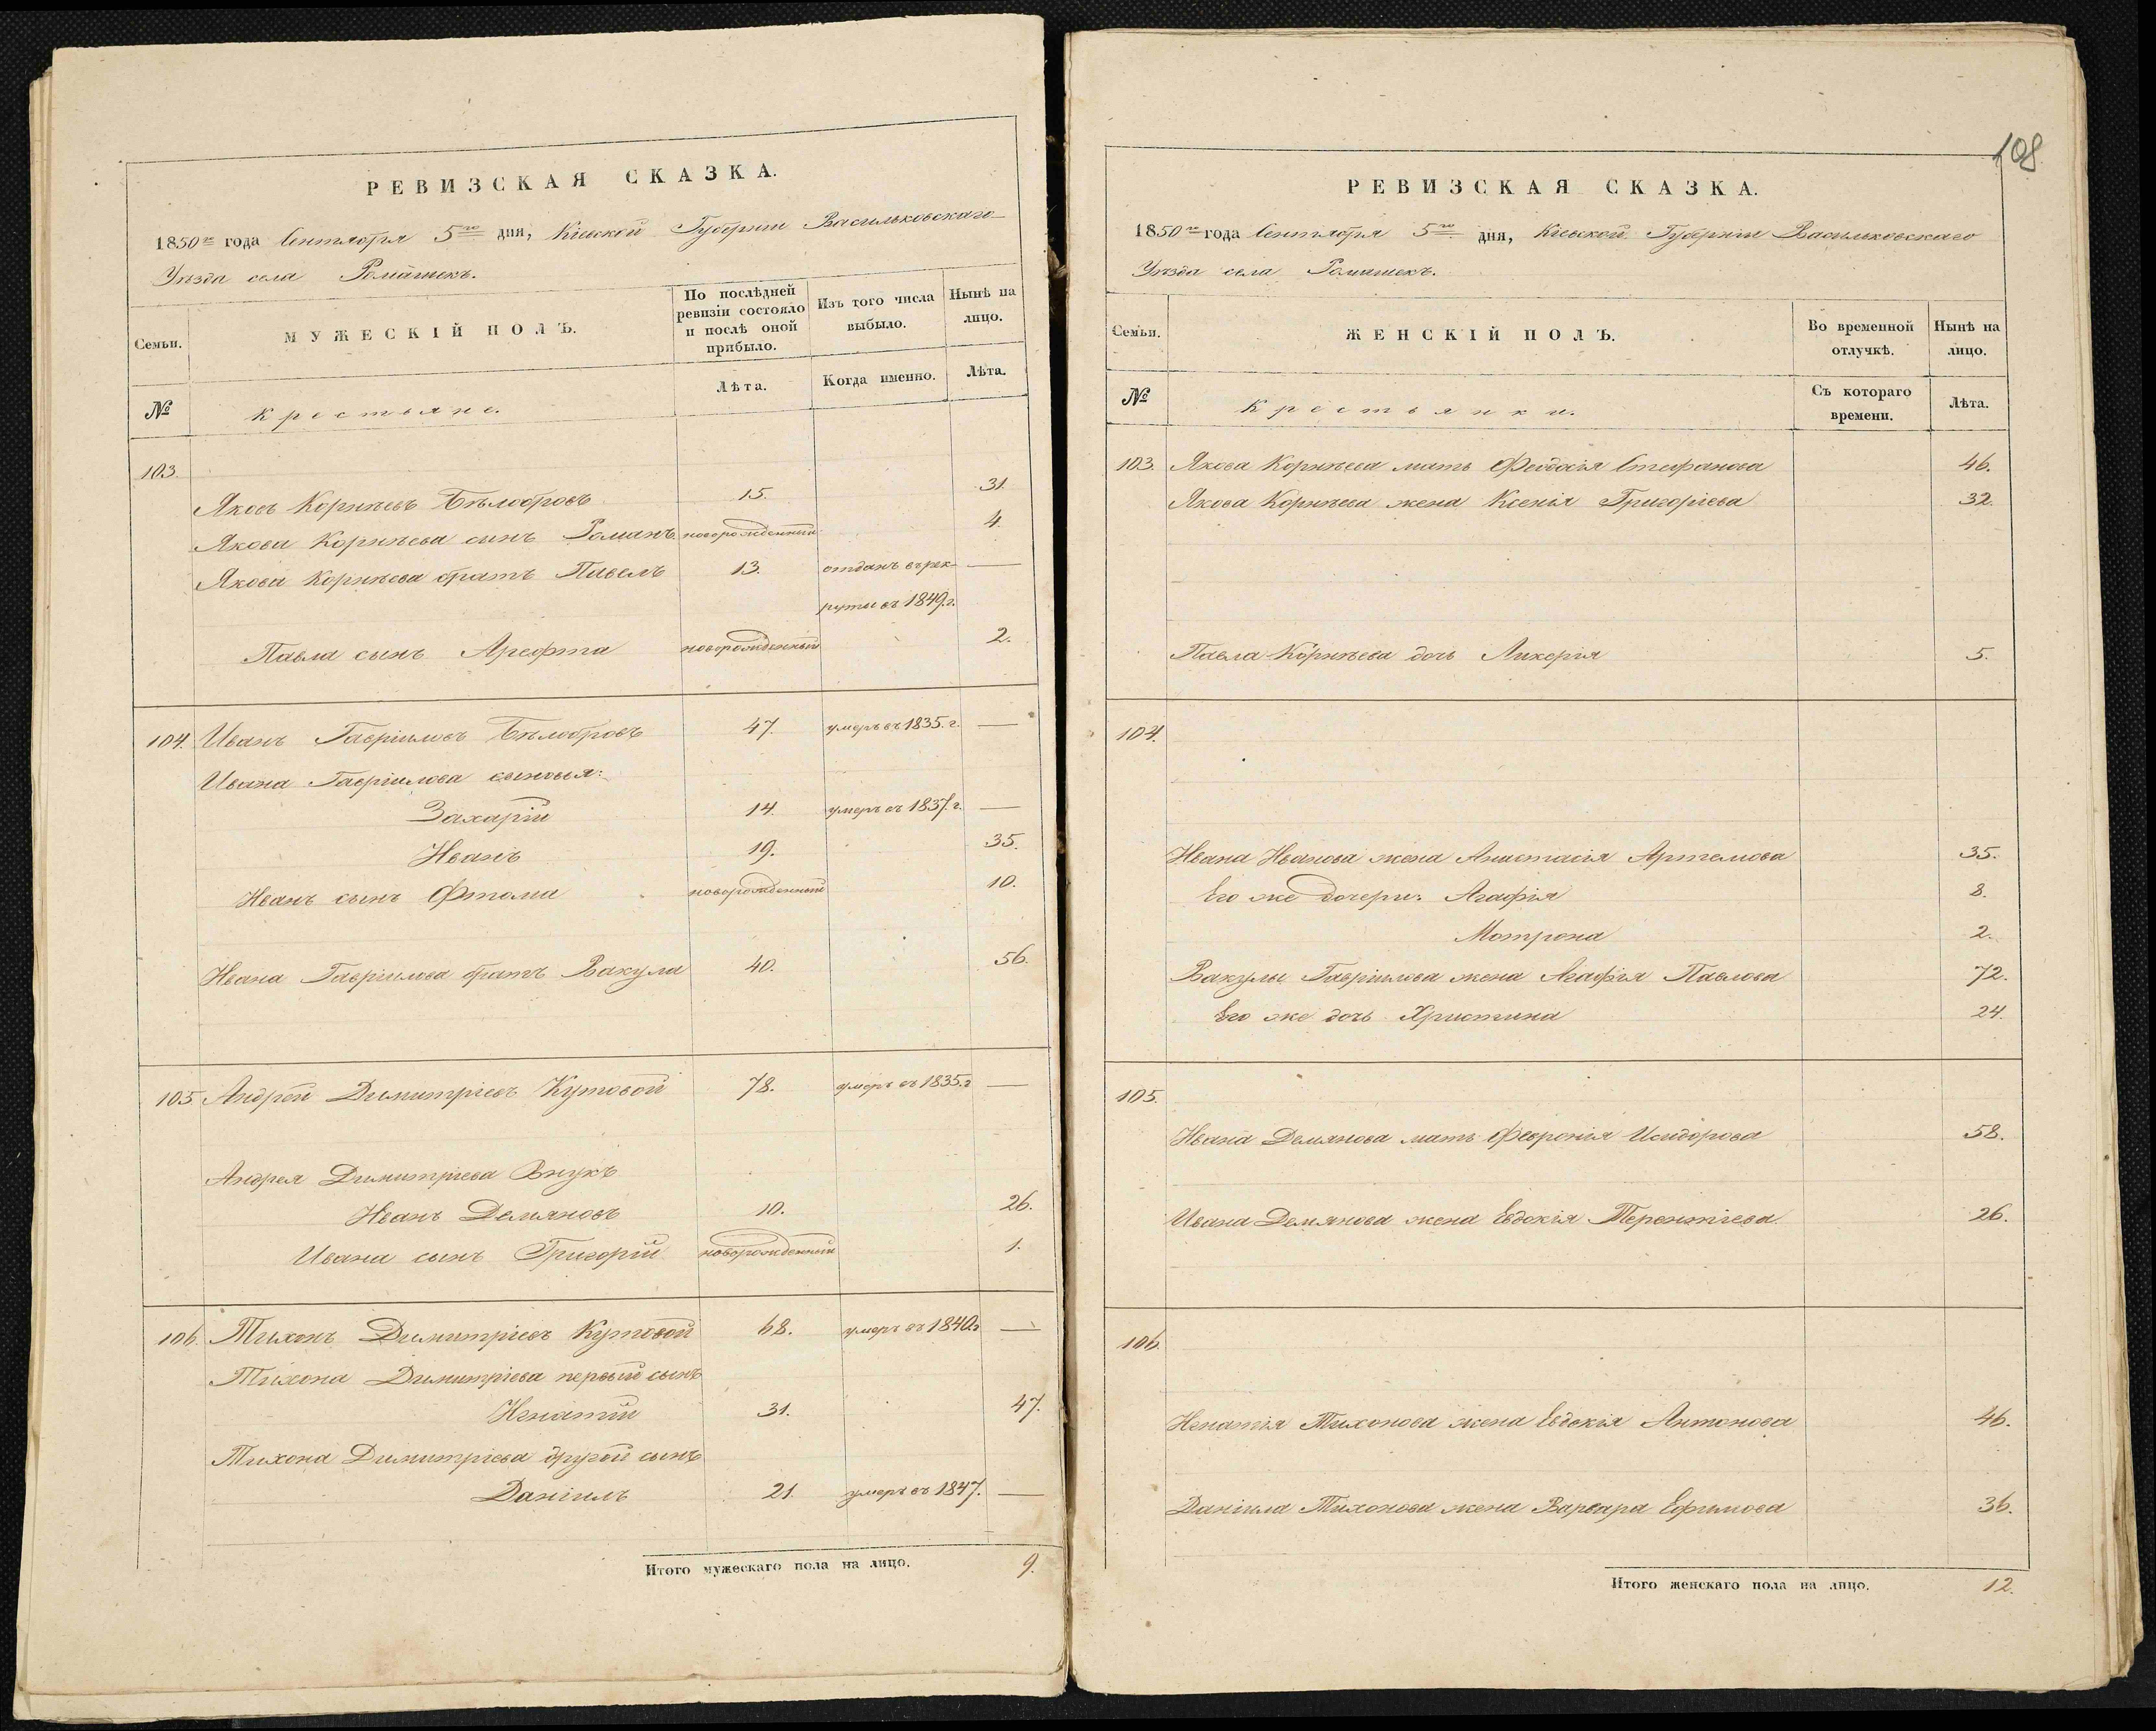 РЕВИЗСКАЯ СКАЗКА.
1850го года Сентября 5го дня, Кіевской Губерніи Васильковскаго
Уѣзда села Ромашекъ.
Семьи.
МУЖЕСКІЙ ПОЛЪ.
По послѣдней ревизіи состояло и послѣ оной прибыло.
Изъ того числа выбыло.
Нынѣ на лицо.
№
Крестьяне.
Лѣта.
Когда именно.
Лѣта.
103.
Яковъ Корнѣевъ Бѣлобровъ 15. 31.
Якова Корнѣева сынъ Романъ новорожденный 4.
Якова Корнѣева братъ Павелъ 13. отданъ въ рек- —
руты въ 1849.г.
Павла сынъ Арефта новорожденный 2.
104. Иванъ Гавріиловъ Бѣлобровъ 47. умеръ въ 1835.г. —
Ивана Гавріилова сыновья:
Захарій 14. умеръ въ 1837.г. —
Иванъ 19. 35.
Иванъ сынъ Фтома новорожденный 10.
Ивана Гавріилова братъ Вакула 40. 56.
105. Андрей Димитріевъ Кутовой 78. умеръ въ 1835.г —
Андрея Димитріева Внукъ
Иванъ Демяновъ 10. 26.
Ивана сынъ Григорій новорожденный 1.
106. Тихонъ Димитріевъ Кутовой 68. умеръ въ 1840г —
Тихона Димитріева первый сынъ
Игнатій 31. 47.
Тихона Димитріева другой сынъ
Даніилъ 21. умеръ въ 1847. —
Итого мужескаго пола на лицо. 9.
108
РЕВИЗСКАЯ СКАЗКА.
1850го года Сентября 5го дня, Кіевской Губерніи Васильковскаго
Уѣзда села Ромашекъ.
Семьи.
ЖЕНСКІЙ ПОЛЪ.
Во временной отлучкѣ.
Нынѣ на лицо.
№
Крестьянки.
Съ котораго времени.
Лѣта.
103. Якова Корнѣева мать Феодосія Стефанова 46.
Якова Корнѣева жена Ксенія Григоріева 32.
Павла Корнѣева дочь Ликерія 5.
104.
Ивана Иванова жена Анастасія Артемова 35.
Его же дочери: Агафія 8.
Мотрона 2.
Вакулы Гавріилова жена Агафія Павлова 72.
Его же дочь Христина 24.
105.
Ивана Демянова мать Февронія Исидорова 58.
Ивана Демянова жена Евдокія Терентіева 26.
106.
Игнатія Тихонова жена Евдокія Антонова 46.
Даніила Тихонова жена Варвара Ефимова 36.
Итого женскаго пола на лицо. 12.